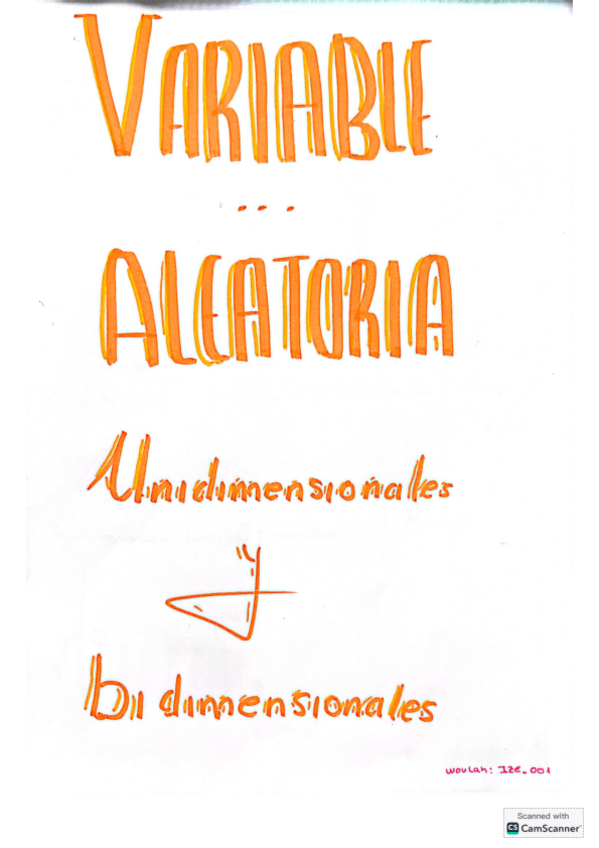 VARIABLE
...
ALEATORIA
Unidimensionales
y
bidimensionales
wovlah: IZE_001
Scanned with
CS CamScanner